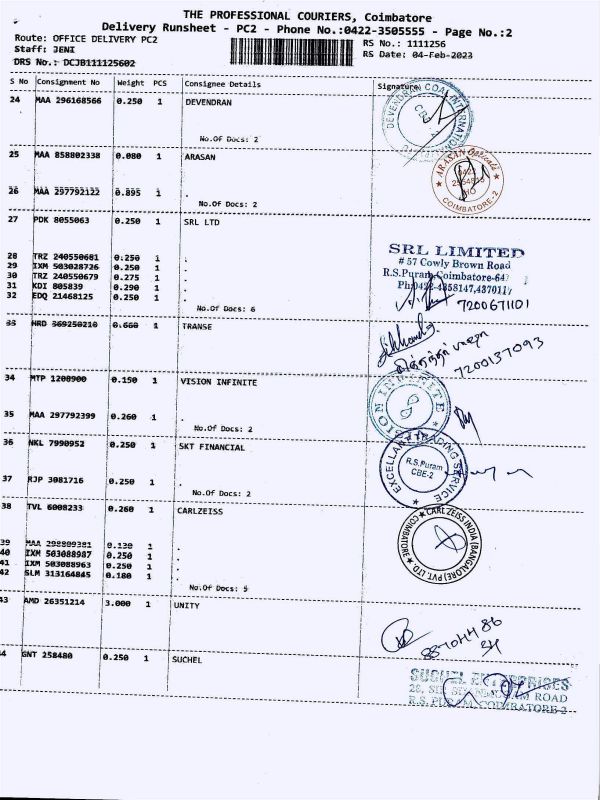 THE PROFESSIONAL COURIERS, Coimbatore
Delivery Runsheet - PC2 - Phone No.:0422-3505555 - Page No.:2
Route: OFFICE DELIVERY PC2
Staff: JENI
DRS No.: DCJB111125602
RS No.: 1111256
RS Date: 04-Feb-2023
S No Consignment No Weight PCS Consignee Details Signature
24 MAA 296168566 0.250 1 DEVENDRAN
No.Of Docs: 2
25 MAA 858802338 0.080 1 ARASAN
26 MAA 297792122 0.895 1 .
No.Of Docs: 2
27 PDK 8055063 0.250 1 SRL LTD
28 TRZ 240550681 0.250 1 .
29 IXM 503028726 0.250 1 .
30 TRZ 240550679 0.275 1 .
31 KDI 805839 0.290 1 .
32 EDQ 21468125 0.250 1 .
No.Of Docs: 6
33 HRD 369250210 0.660 1 TRANSE
34 MTP 1200900 0.150 1 VISION INFINITE
35 MAA 297792399 0.260 1 .
No.Of Docs: 2
36 NKL 7990952 0.250 1 SKT FINANCIAL
37 RJP 3081716 0.250 1 .
No.Of Docs: 2
38 TVL 6008233 0.260 1 CARLZEISS
39 MAA 298809381 0.130 1 .
40 IXM 503088987 0.250 1 .
41 IXM 503088963 0.250 1 .
42 SLM 313164845 0.180 1 .
No.Of Docs: 5
43 AMD 26351214 3.000 1 UNITY
44 GNT 258480 0.250 1 SUCHEL
DEVENDRAN COAL INTERNATIONAL
CBE
ARASAN Opticals
0422
COIMBATORE-2
SRL LIMITED
# 57 Cowly Brown Road
R.S.Puram, Coimbatore-641
Ph:0422-4358147,437011
7200671101
7200137093
VISION INFINITE
EXCELLAR TRADING SERVICE
R.S.Puram
CBE-2
CARL ZEISS INDIA (BANGALORE) PVT. LTD.
COIMBATORE
SUCHEL ENTERPRISES
R.S. PURAM, COIMBATORE-2